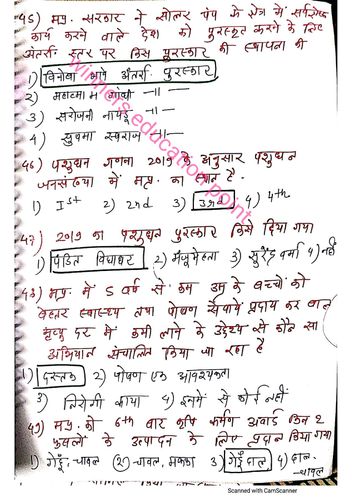 45) मप्र. सरकार ने सोलर पंप के क्षेत्र में सर्वश्रेष्ठ
कार्य करने वाले देश को पुरस्कृत करने के लिए
अंतर्रा. स्तर पर किस पुरस्कार की स्थापना की
1) विनोबा भावे अंतर्रा. पुरस्कार
2) महात्मा गांधी —॥—
3) सरोजनी नायडू —॥—
4) सुषमा स्वराज —॥—
46) पशुधन गणना 2019 के अनुसार पशुधन
जनसंख्या में मप्र. का स्थान है.
1) Ist 2) 2nd 3) 3rd 4) 4th
47) 2019 का पशुधन पुरस्कार किसे दिया गया
1) पंडित विद्याधर 2) मंजू मेहता 3) सुरेंद्र वर्मा 4) नहीं
48) मप्र. में 5 वर्ष से कम उम्र के बच्चों को
बेहतर स्वास्थ्य तथा पोषण सेवायें प्रदाय कर बाल
मृत्यु दर में कमी लाने के उद्देश्य से कौन सा
अभियान संचालित किया जा रहा है
1) दस्तक 2) पोषण एक आवश्यकता
3) निरोगी काया 4) इनमें से कोई नहीं
49) मप्र. को 6th बार कृषि कर्मण अवार्ड किन 2
फसलों के उत्पादन के लिए प्रदान किया गया
1) गेहूँ-चावल 2) चावल, मक्का 3) गेहूँ दाल 4) दाल-
चावल
winners education point
Scanned with CamScanner